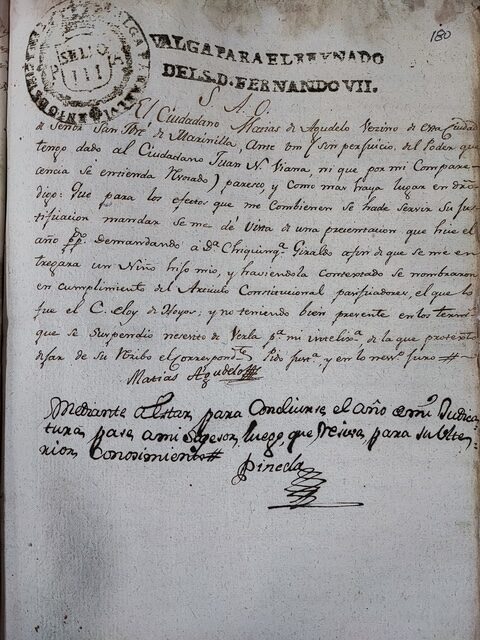 180
VALGA PARA EL REYNADO
DEL S. D. FERNANDO VII.
SELLO
III
S. A. O.
El Ciudadano Matias de Agudelo Vezino de esta Ciudad
de Señor San José de Marinilla, ante Vm (y sin perjuicio, del Poder que
tengo dado al Ciudadano Juan N. Viana, ni que por mi Compare-
cencia se entienda Revocado) paresco, y como mas haya lugar en dro
digo: Que para los efectos que me combienen se hade servir su Jus-
tificacion mandar se me dé Vista de una precentacion que hice el
año pp. demandando á Da. Chiquinqa. Giraldo afin de que se me en-
tregara un Niño hijo mio, y haviendola contestado se nombraron
en cumplimiento del Articulo Constitucional pacificadores, el que lo
fue el C. Eloy de Hoyos; y no teniendo bien precente en los term.
que se suspendio necesito de Verla pa. mi inteliga. de la que protesto
dejar de su Recibo el Correspondte. Pido justa. y en lo neso. juro
Matias Agudelo
Mediante a Estar, para Concluirse el año de mi Judica-
tura, pase, a mi Susesor, luego, que Resiva, para su Ulte-
rior, Conosimiento
Pineda